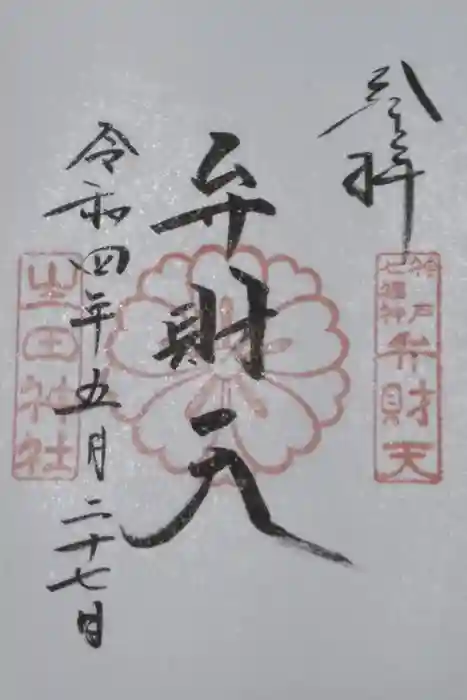 参拝
神戸
七福神
弁財天
弁財天
令和四年五月二十七日
生田神社